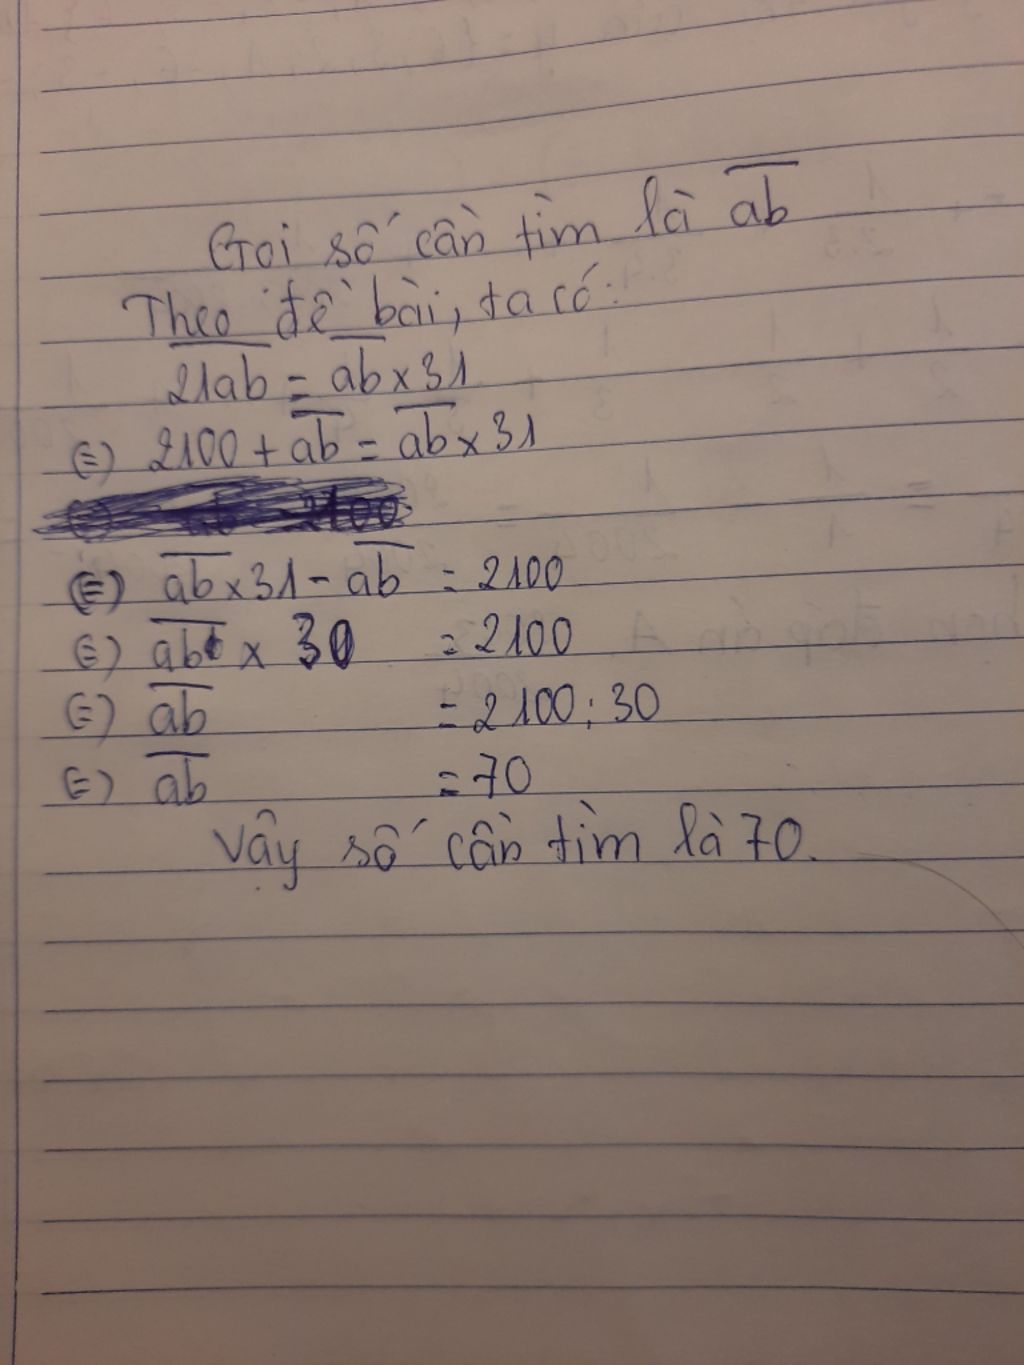 Gọi số cần tìm là a̅b̅
Theo đề bài, ta có:
2̅1̅a̅b̅ = a̅b̅ x 31
(=) 2100 + a̅b̅ = a̅b̅ x 31
(=) a̅b̅ x 31 - a̅b̅ = 2100
(=) a̅b̅ x 30 = 2100
(=) a̅b̅ = 2100 : 30
(=) a̅b̅ = 70
Vậy số cần tìm là 70.